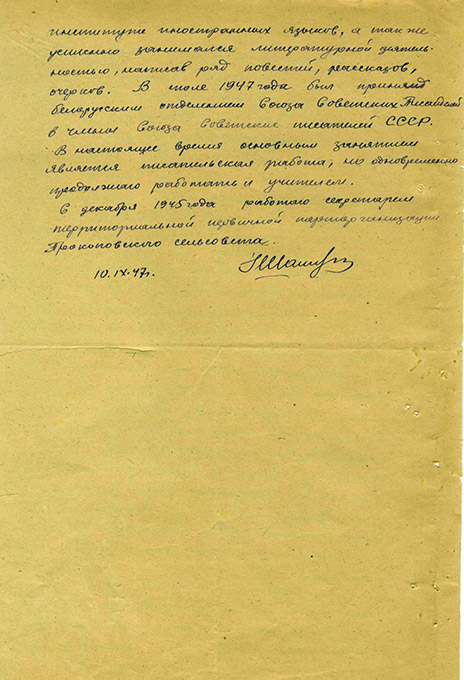 институте иностранных языков, а так же
усиленно занимался литературной деятель-
ностью, написав ряд повестей, рассказов,
очерков. В июле 1947 года был принят
белорусским отделением Союза Советских Писателей
в члены Союза Советских писателей СССР.
В настоящее время основным занятием
является писательская работа, но одновременно
продолжаю работать и учителем.
С декабря 1945 года работаю секретарем
территориальной первичной парторганизации
Прокоповского сельсовета.
10.IX.47г.